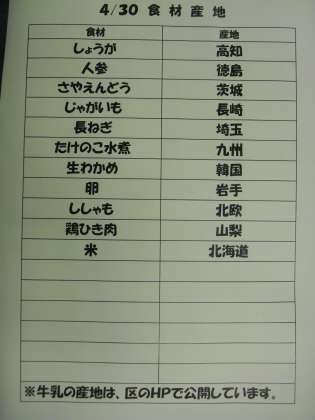 4/30 食材産地
食材 産地
しょうが 高知
人参 徳島
さやえんどう 茨城
じゃがいも 長崎
長ねぎ 埼玉
たけのこ水煮 九州
生わかめ 韓国
卵 岩手
ししゃも 北欧
鶏ひき肉 山梨
米 北海道
※牛乳の産地は、区のHPで公開しています。